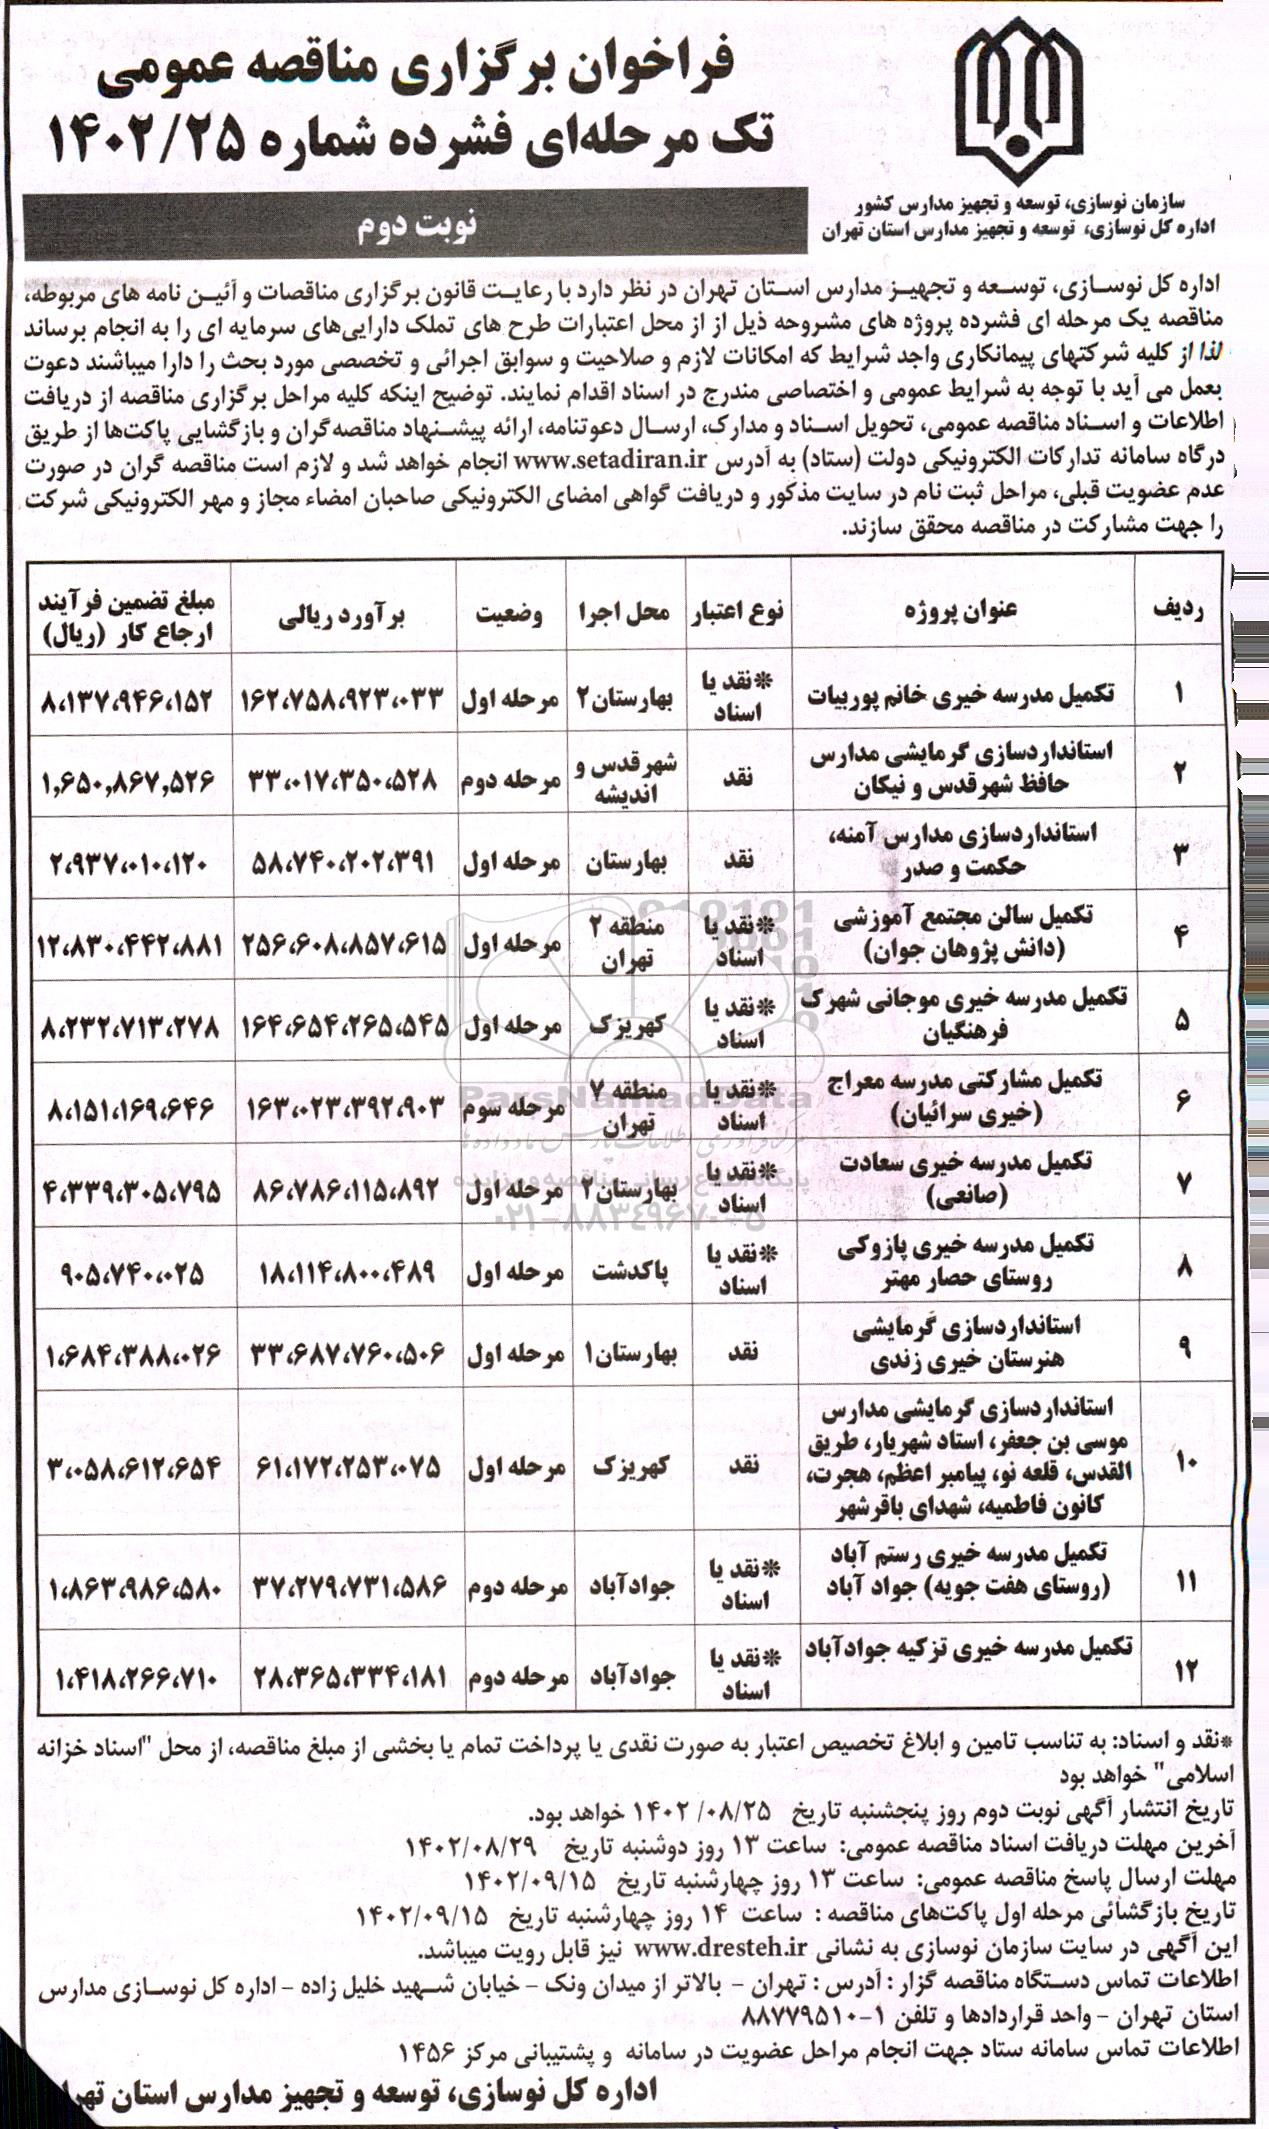 فراخوان برگزاری مناقصه عمومی
تک مرحله‌ای فشرده شماره ۱۴۰۲/۲۵
نوبت دوم
سازمان نوسازی، توسعه و تجهیز مدارس کشور
اداره کل نوسازی، توسعه و تجهیز مدارس استان تهران
اداره کل نوسازی، توسعه و تجهیز مدارس استان تهران در نظر دارد با رعایت قانون برگزاری مناقصات و آئین نامه های مربوطه،
مناقصه یک مرحله ای فشرده پروژه های مشروحه ذیل از از محل اعتبارات طرح های تملک دارایی‌های سرمایه ای را به انجام برساند
لذا از کلیه شرکتهای پیمانکاری واجد شرایط که امکانات لازم و صلاحیت و سوابق اجرائی و تخصصی مورد بحث را دارا میباشند دعوت
بعمل می آید با توجه به شرایط عمومی و اختصاصی مندرج در اسناد اقدام نمایند. توضیح اینکه کلیه مراحل برگزاری مناقصه از دریافت
اطلاعات و اسناد مناقصه عمومی، تحویل اسناد و مدارک، ارسال دعوتنامه، ارائه پیشنهاد مناقصه‌گران و بازگشایی پاکت‌ها از طریق
درگاه سامانه تدارکات الکترونیکی دولت (ستاد) به آدرس www.setadiran.ir انجام خواهد شد و لازم است مناقصه گران در صورت
عدم عضویت قبلی، مراحل ثبت نام در سایت مذکور و دریافت گواهی امضای الکترونیکی صاحبان امضاء مجاز و مهر الکترونیکی شرکت
را جهت مشارکت در مناقصه محقق سازند.
ردیف عنوان پروژه نوع اعتبار محل اجرا وضعیت برآورد ریالی مبلغ تضمین فرآیند ارجاع کار (ریال)
۱ تکمیل مدرسه خیری خانم پوربیات *نقد یا اسناد بهارستان۲ مرحله اول ۱۶۲،۷۵۸،۹۲۳،۰۳۳ ۸،۱۳۷،۹۴۶،۱۵۲
۲ استانداردسازی گرمایشی مدارس حافظ شهرقدس و نیکان نقد شهرقدس و اندیشه مرحله دوم ۳۳،۰۱۷،۳۵۰،۵۲۸ ۱,۶۵۰,۸۶۷,۵۲۶
۳ استانداردسازی مدارس آمنه، حکمت و صدر نقد بهارستان مرحله اول ۵۸،۷۴۰،۲۰۲،۳۹۱ ۲،۹۳۷،۰۱۰،۱۲۰
۴ تکمیل سالن مجتمع آموزشی (دانش پژوهان جوان) *نقد یا اسناد منطقه ۲ تهران مرحله اول ۲۵۶،۶۰۸،۸۵۷،۶۱۵ ۱۲،۸۳۰،۴۴۲،۸۸۱
۵ تکمیل مدرسه خیری موجانی شهرک فرهنگیان *نقد یا اسناد کهریزک مرحله اول ۱۶۴،۶۵۴،۲۶۵،۵۴۵ ۸،۲۳۲،۷۱۳،۲۷۸
۶ تکمیل مشارکتی مدرسه معراج (خیری سرائیان) *نقد یا اسناد منطقه ۷ تهران مرحله سوم ۱۶۳،۰۲۳،۳۹۲،۹۰۳ ۸،۱۵۱،۱۶۹،۶۴۶
۷ تکمیل مدرسه خیری سعادت (صانعی) *نقد یا اسناد بهارستان۲ مرحله اول ۸۶،۷۸۶،۱۱۵،۸۹۲ ۴،۳۳۹،۳۰۵،۷۹۵
۸ تکمیل مدرسه خیری پازوکی روستای حصار مهتر *نقد یا اسناد پاکدشت مرحله اول ۱۸،۱۱۴،۸۰۰،۴۸۹ ۹۰۵،۷۴۰،۰۲۵
۹ استانداردسازی گرمایشی هنرستان خیری زندی نقد بهارستان۱ مرحله اول ۳۳،۶۸۷،۷۶۰،۵۰۶ ۱،۶۸۴،۳۸۸،۰۲۶
۱۰ استانداردسازی گرمایشی مدارس موسی بن جعفر، استاد شهریار، طریق القدس، قلعه نو، پیامبر اعظم، هجرت، کانون فاطمیه، شهدای باقرشهر نقد کهریزک مرحله اول ۶۱،۱۷۲،۲۵۳،۰۷۵ ۳،۰۵۸،۶۱۲،۶۵۴
۱۱ تکمیل مدرسه خیری رستم آباد (روستای هفت جویه) جواد آباد *نقد یا اسناد جوادآباد مرحله دوم ۳۷،۲۷۹،۷۳۱،۵۸۶ ۱،۸۶۳،۹۸۶،۵۸۰
۱۲ تکمیل مدرسه خیری تزکیه جوادآباد *نقد یا اسناد جوادآباد مرحله دوم ۲۸،۳۶۵،۳۳۴،۱۸۱ ۱،۴۱۸،۲۶۶،۷۱۰
ParsNamadData
پایگاه اطلاع رسانی مناقصه و مزایده
۰۲۱-۸۸۳۴۹۶۷۰-۵
*نقد و اسناد: به تناسب تامین و ابلاغ تخصیص اعتبار به صورت نقدی یا پرداخت تمام یا بخشی از مبلغ مناقصه، از محل "اسناد خزانه
اسلامی" خواهد بود
تاریخ انتشار آگهی نوبت دوم روز پنجشنبه تاریخ ۱۴۰۲/۰۸/۲۵ خواهد بود.
آخرین مهلت دریافت اسناد مناقصه عمومی: ساعت ۱۳ روز دوشنبه تاریخ ۱۴۰۲/۰۸/۲۹
مهلت ارسال پاسخ مناقصه عمومی: ساعت ۱۳ روز چهارشنبه تاریخ ۱۴۰۲/۰۹/۱۵
تاریخ بازگشائی مرحله اول پاکت‌های مناقصه : ساعت ۱۴ روز چهارشنبه تاریخ ۱۴۰۲/۰۹/۱۵
این آگهی در سایت سازمان نوسازی به نشانی www.dresteh.ir نیز قابل رویت میباشد.
اطلاعات تماس دستگاه مناقصه گزار : آدرس : تهران - بالاتر از میدان ونک - خیابان شهید خلیل زاده - اداره کل نوسازی مدارس
استان تهران - واحد قراردادها و تلفن ۱-۸۸۷۷۹۵۱۰
اطلاعات تماس سامانه ستاد جهت انجام مراحل عضویت در سامانه و پشتیبانی مرکز ۱۴۵۶
اداره کل نوسازی، توسعه و تجهیز مدارس استان تهران